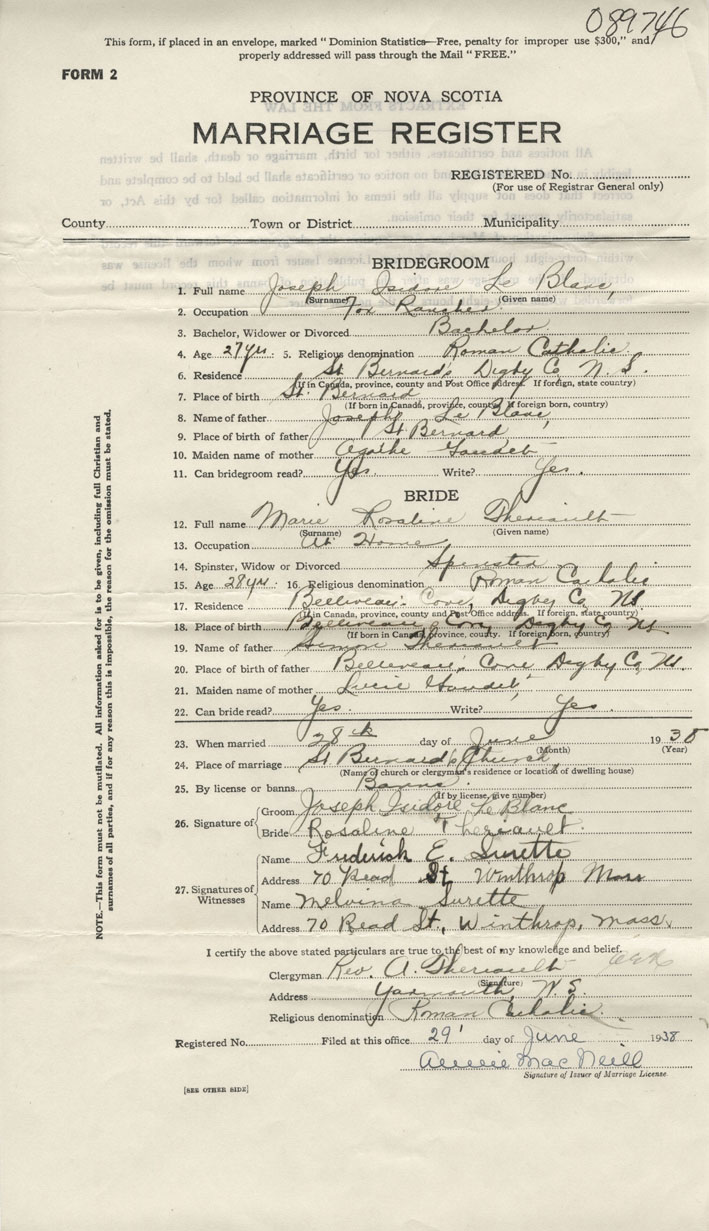 089746
This form, if placed in an envelope, marked "Dominion Statistics—Free, penalty for improper use $300," and
properly addressed will pass through the Mail "FREE."
FORM 2
PROVINCE OF NOVA SCOTIA
MARRIAGE REGISTER
REGISTERED No.
(For use of Registrar General only)
County Town or District Municipality
BRIDEGROOM
1. Full name Joseph Isidore Le Blanc,
(Surname) (Given name)
2. Occupation Fox Rancher
3. Bachelor, Widower or Divorced Bachelor
4. Age 27 yrs: 5. Religious denomination Roman Catholic
6. Residence St Bernards Digby Co. N. S.
(If in Canada, province, county and Post Office address. If foreign, state country)
7. Place of birth St. Bernard
(If born in Canada, province, county, If foreign born, country)
8. Name of father Joseph Le Blanc,
9. Place of birth of father St Bernard
10. Maiden name of mother Agathe Gaudet
11. Can bridegroom read? Yes. Write? Yes.
BRIDE
12. Full name Marie Rosaline Theriault
(Surname) (Given name)
13. Occupation At Home,
14. Spinster, Widow or Divorced Spinster
15. Age 28 yrs: 16. Religious denomination Roman Catholic
17. Residence Belliveau's Cove, Digby Co, NS
(If in Canada, province, county and Post Office address. If foreign, state country)
18. Place of birth Belliveau's Cove Digby Co, NS
(If born in Canada, province, county. If foreign born, country)
19. Name of father Simon Theriault
20. Place of birth of father Belliveau's Cove Digby Co, NS.
21. Maiden name of mother Lucie Gaudet,
22. Can bride read? Yes. Write? Yes.
23. When married 28th day of June 1938
(Month) (Year)
24. Place of marriage St Bernard's Church,
(Name of church or clergyman's residence or location of dwelling house)
25. By license or banns Banns
(If by license, give number)
26. Signature of Groom Joseph Isidore Le Blanc
Bride Rosaline Thereault.
27. Signatures of Witnesses
Name Frederick E. Surette
Address 70 Read St Winthrop Mass
Name Melvina Surette
Address 70 Read St., Winthrop, Mass.
I certify the above stated particulars are true to the best of my knowledge and belief.
Clergyman Rev. A. Theriault
(Signature)
Address Yarmouth, N S.
Religious denomination Roman Catholic.
Registered No. Filed at this office 29' day of June 1938
Annie MacNeill
Signature of Issuer of Marriage License.
[SEE OTHER SIDE]
NOTE.—This form must not be mutilated. All information asked for is to be given, including full Christian and
surnames of all parties, and if for any reason this is impossible, the reason for the omission must be stated.